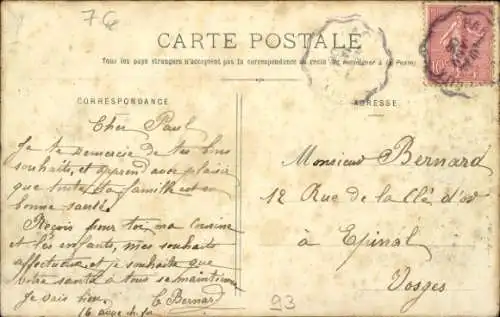 76
CARTE POSTALE
Tous les pays étrangers n'acceptent pas la correspondance au recto (Se renseigner à la Poste)
CORRESPONDANCE
ADRESSE
Cher Paul
Je te remercie de tes bons
souhaits, et apprend avec plaisir
que toute ta famille est en
bonne santé.
Reçois pour toi, ma cousine
et les enfants, mes souhaits
affectueux et je souhaite que
votre santé à tous se maintienne
Je vais bien.
E Bernard
16
Monsieur Bernard
12 Rue de la Clé d'or
à Epinal
Vosges
93
10